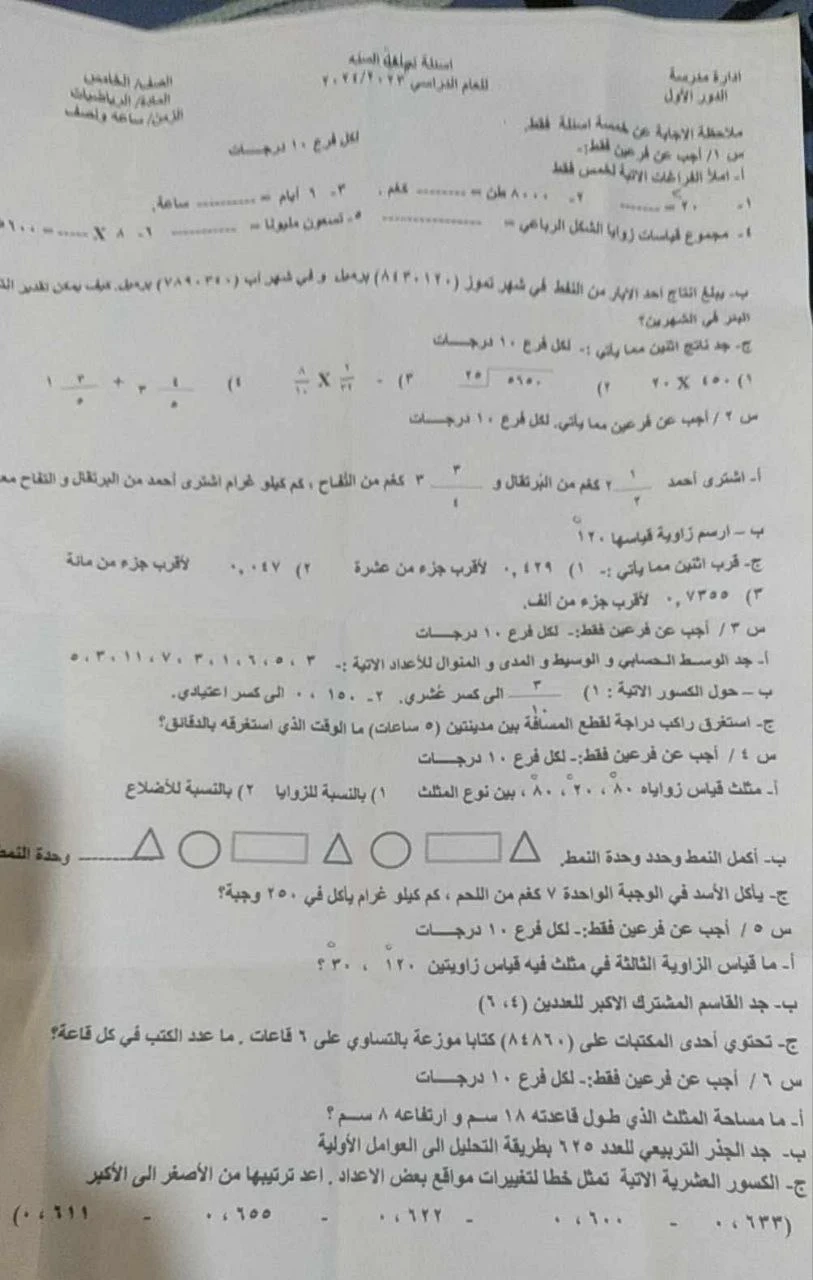 ادارة مدرسة
الدور الأول
اسئلة نهاية السنة
للعام الدراسي ٢٠٢٤/٢٠٢٣
الصف/ الخامس
المادة/ الرياضيات
الزمن/ ساعة ونصف
ملاحظة الاجابة عن خمسة اسئلة فقط.
س ١/ أجب عن فرعين فقط:- لكل فرع ١٠ درجـــات
أ- املأ الفراغات الاتية لخمس فقط
١- ٢٠ = ........ ٢- ٨٠٠٠ طن = ........ كغم . ٣- ٦ أيام = .......... ساعة.
٤- مجموع قياسات زوايا الشكل الرباعي = .............. ٥- تسعون مليونا = .......... ٦- ٨ X ...... = ٥٦٠٠
ب- يبلغ انتاج احد الابار من النفط في شهر تموز (٨٤٣٠١٢٠) برميل و في شهر اب (٧٨٩٠٣٤٠) برميل. كيف يمكن تقدير
البئر في الشهرين؟
ج- جد ناتج اثنين مما يأتي :- لكل فرع ١٠ درجـــات
١) ٤٥٠ X ٢٠ ٢) ٥٦٥٠ ٢٥ ٣) ١/٣٢ X ٨/١٠ ٤) ٣ ٤/٥ + ١ ٣/٥
س ٢ / أجب عن فرعين مما يأتي. لكل فرع ١٠ درجـــات
أ- اشترى أحمد ٢ ١/٢ كغم من البُرتقال و ٣ ٣/٤ كغم من التُفاح ، كم كيلو غرام اشترى أحمد من البرتقال و التفاح
ب – ارسم زاوية قياسها ١٢٠°
ج- قرب اثنين مما يأتي :- ١) ٠,٤٢٩ لأقرب جزء من عشرة ٢) ٠,٠٤٧ لأقرب جزء من مائة
٣) ٠,٧٣٥٥ لأقرب جزء من الف.
س ٣ / أجب عن فرعين فقط:- لكل فرع ١٠ درجـــات
أ- جد الوسـط الحسابي و الوسيط و المدى و المنوال للأعداد الاتية :- ٣ ، ٥ ، ٦ ، ١ ، ٣ ، ٧ ، ١١ ، ٣ ، ٥
ب – حول الكسور الاتية : ١) ٣/١٠ الى كسر عُشري. ٢- ٠،١٥٠ الى كسر اعتيادي.
ج- استغرق راكب دراجة لقطع المسافة بين مدينتين (٥ ساعات) ما الوقت الذي استغرقه بالدقائق؟
س ٤ / أجب عن فرعين فقط:- لكل فرع ١٠ درجـــات
أ- مثلث قياس زواياه ٨٠° ، ٢٠° ، ٨٠° ، بين نوع المثلث ١) بالنسبة للزوايا ٢) بالنسبة للأضلاع
ب- أكمل النمط وحدد وحدة النمط. ........ وحدة النمط
ج- يأكل الأسد في الوجبة الواحدة ٧ كغم من اللحم ، كم كيلو غرام يأكل في ٢٥٠ وجبة؟
س ٥ / أجب عن فرعين فقط:- لكل فرع ١٠ درجـــات
أ- ما قياس الزاوية الثالثة في مثلث فيه قياس زاويتين ١٢٠° ، ٣٠° ؟
ب- جد القاسم المشترك الاكبر للعددين (٤، ٦)
ج- تحتوي أحدى المكتبات على (٨٤٨٦٠) كتابا موزعة بالتساوي على ٦ قاعات . ما عدد الكتب في كل قاعة؟
س ٦ / أجب عن فرعين فقط:- لكل فرع ١٠ درجـــات
أ- ما مساحة المثلث الذي طـول قاعدته ١٨ سـم و ارتفاعه ٨ سـم ؟
ب- جد الجذر التربيعي للعدد ٦٢٥ بطريقة التحليل الى العوامل الأولية
ج- الكسور العشرية الاتية تمثل خطا لتغييرات مواقع بعض الاعداد . اعد ترتيبها من الأصغر الى الأكبر
(٠،٦٣٣ - ٠،٦٠٠ - ٠،٦٢٢ - ٠،٦٥٥ - ٠،٦١١)